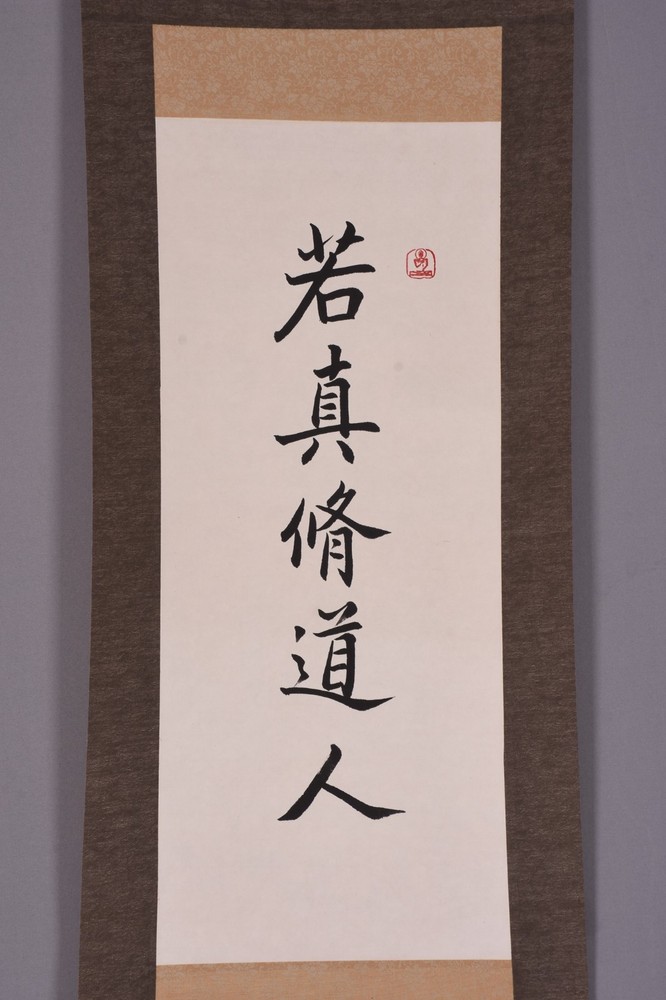 若真脩道人